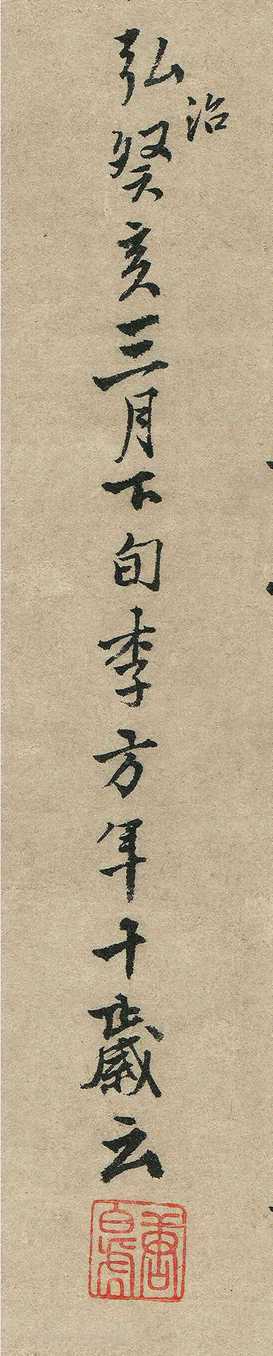 弘治癸亥三月下旬李方年十歲云
唐寅